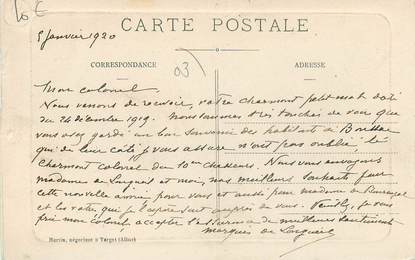 10 E
5 Janvier 1920
CARTE POSTALE
CORRESPONDANCE
ADRESSE
03
Mon colonel.
Nous venons de recevoir, votre charmant petit mot daté
du 24 décembre 1919. Nous sommes très touchés de voir que
vous avez gardé un bon souvenir des habitants de
qui de leur côté je vous assure n'ont pas oublié, le
charmant colonel du 10eme chasseurs. Nous vous envoyons
madame de et moi, nos meilleurs souhaits pour
cette nouvelle année pour vous et aussi pour madame de
et les votres qui je l'espère sont auprès de vous. Veuillez, je vous
prie mon colonel, accepter l'assurance de meilleurs sentiments
marquis de
négociant à Target (Allier)